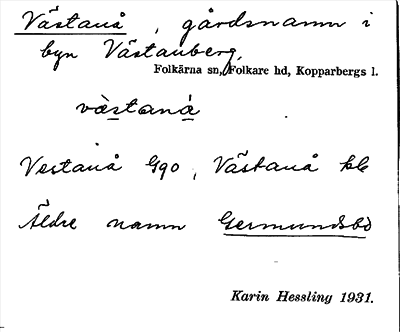 Västanå, gårdsnamn i
byn Västanberg,
Folkärna sn, Folkare hd, Kopparbergs l.
västaná
Vestanå Gqo, Västanå kb
Äldre namn Germundsbo
Karin Hessling 1931.